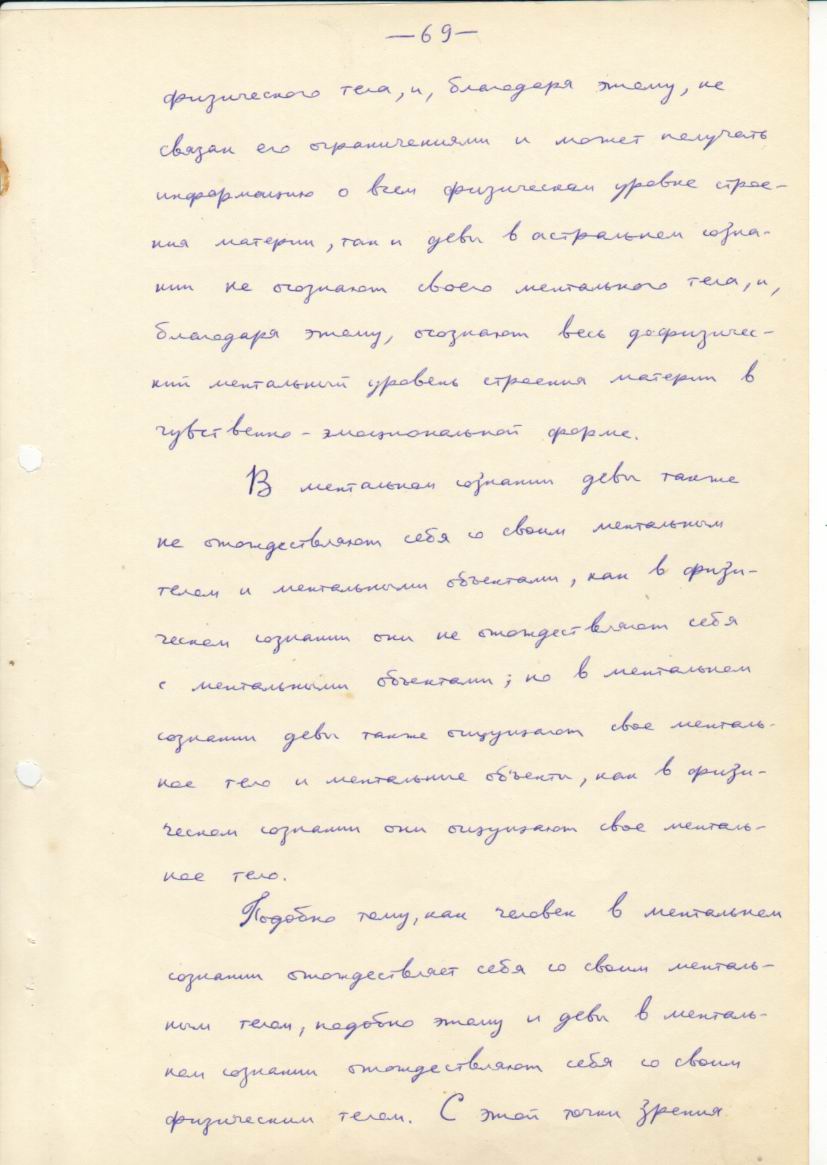 —69—
физического тела, и, благодаря этому, не
связан его ограничениями и может получать
информацию о всем физическом уровне строе-
ния материи, так и девы в астральном созна-
нии не осознают своего ментального тела, и,
благодаря этому, осознают весь дофизичес-
кий ментальный уровень строения материи в
чувственно-эмоциональной форме.
В ментальном сознании девы также
не отождествляют себя со своим ментальным
телом и ментальными объектами, как в физи-
ческом сознании они не отождествляют себя
с ментальными объектами; но в ментальном
сознании девы также ощущают свое менталь-
ное тело и ментальные объекты, как в физи-
ческом сознании они ощущают свое менталь-
ное тело.
Подобно тому, как человек в ментальном
сознании отождествляет себя со своим менталь-
ным телом, подобно этому и девы в менталь-
ном сознании отождествляют себя со своим
физическим телом. С этой точки зрения